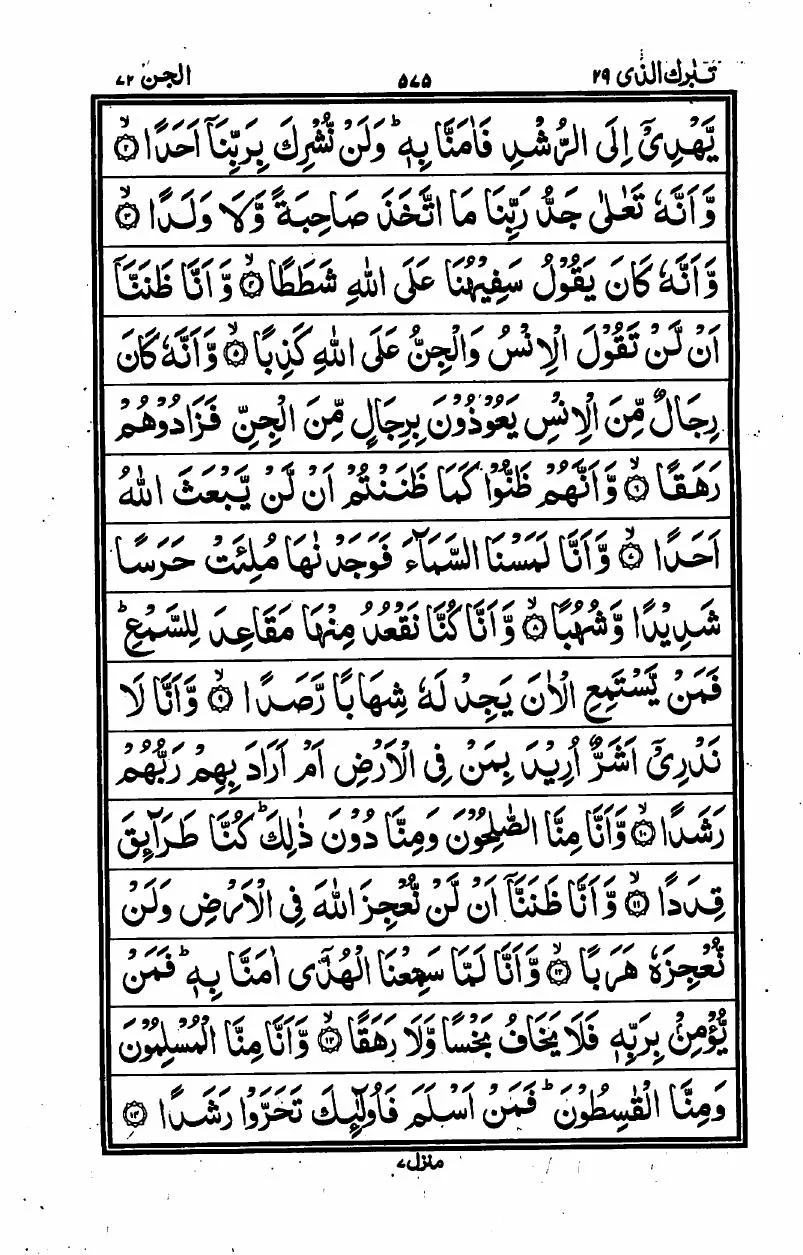 تبٰرك الذی ۲۹
۵۷۵
الجن ۷۲
یَّهْدِیْۤ اِلَی الرُّشْدِ فَاٰمَنَّا بِهٖ ؕ وَلَنْ نُّشْرِكَ بِرَبِّنَاۤ اَحَدًا ۙ﴿۲﴾
وَّاَنَّهٗ تَعٰلٰی جَدُّ رَبِّنَا مَا اتَّخَذَ صَاحِبَةً وَّلَا وَلَدًا ۙ﴿۳﴾
وَّاَنَّهٗ كَانَ یَقُوْلُ سَفِیْهُنَا عَلَی اللّٰهِ شَطَطًا ۙ﴿۴﴾ وَّاَنَّا ظَنَنَّاۤ
اَنْ لَّنْ تَقُوْلَ الْاِنْسُ وَالْجِنُّ عَلَی اللّٰهِ كَذِبًا ۙ﴿۵﴾ وَّاَنَّهٗ كَانَ
رِجَالٌ مِّنَ الْاِنْسِ یَعُوْذُوْنَ بِرِجَالٍ مِّنَ الْجِنِّ فَزَادُوْهُمْ
رَهَقًا ۙ﴿۶﴾ وَّاَنَّهُمْ ظَنُّوْا كَمَا ظَنَنْتُمْ اَنْ لَّنْ یَّبْعَثَ اللّٰهُ
اَحَدًا ۙ﴿۷﴾ وَّاَنَّا لَمَسْنَا السَّمَآءَ فَوَجَدْنٰهَا مُلِئَتْ حَرَسًا
شَدِیْدًا وَّشُهُبًا ۙ﴿۸﴾ وَّاَنَّا كُنَّا نَقْعُدُ مِنْهَا مَقَاعِدَ لِلسَّمْعِ ؕ
فَمَنْ یَّسْتَمِعِ الْاٰنَ یَجِدْ لَهٗ شِهَابًا رَّصَدًا ۙ﴿۹﴾ وَّاَنَّا لَا
نَدْرِیْۤ اَشَرٌّ اُرِیْدَ بِمَنْ فِی الْاَرْضِ اَمْ اَرَادَ بِهِمْ رَبُّهُمْ
رَشَدًا ۙ﴿۱۰﴾ وَّاَنَّا مِنَّا الصّٰلِحُوْنَ وَمِنَّا دُوْنَ ذٰلِكَ ؕ كُنَّا طَرَآىِٕقَ
قِدَدًا ۙ﴿۱۱﴾ وَّاَنَّا ظَنَنَّاۤ اَنْ لَّنْ نُّعْجِزَ اللّٰهَ فِی الْاَرْضِ وَلَنْ
نُّعْجِزَهٗ هَرَبًا ۙ﴿۱۲﴾ وَّاَنَّا لَمَّا سَمِعْنَا الْهُدٰۤی اٰمَنَّا بِهٖ ؕ فَمَنْ
یُّؤْمِنْۢ بِرَبِّهٖ فَلَا یَخَافُ بَخْسًا وَّلَا رَهَقًا ۙ﴿۱۳﴾ وَّاَنَّا مِنَّا الْمُسْلِمُوْنَ
وَمِنَّا الْقٰسِطُوْنَ ؕ فَمَنْ اَسْلَمَ فَاُولٰٓىِٕكَ تَحَرَّوْا رَشَدًا ﴿۱۴﴾
منزل ۷